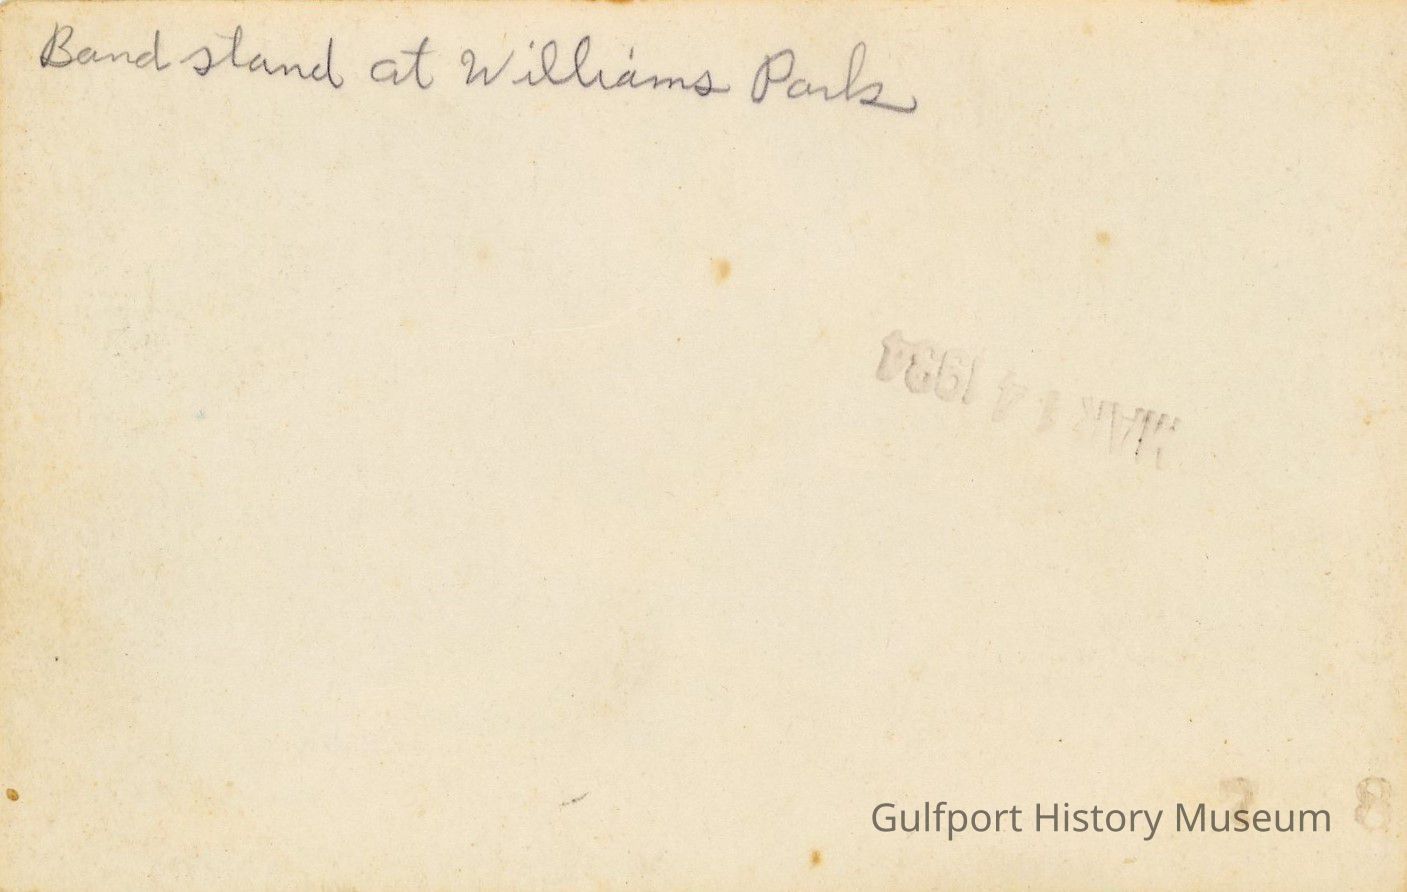 Band stand at Williams Park
MAR 14 1934
Gulfport History Museum